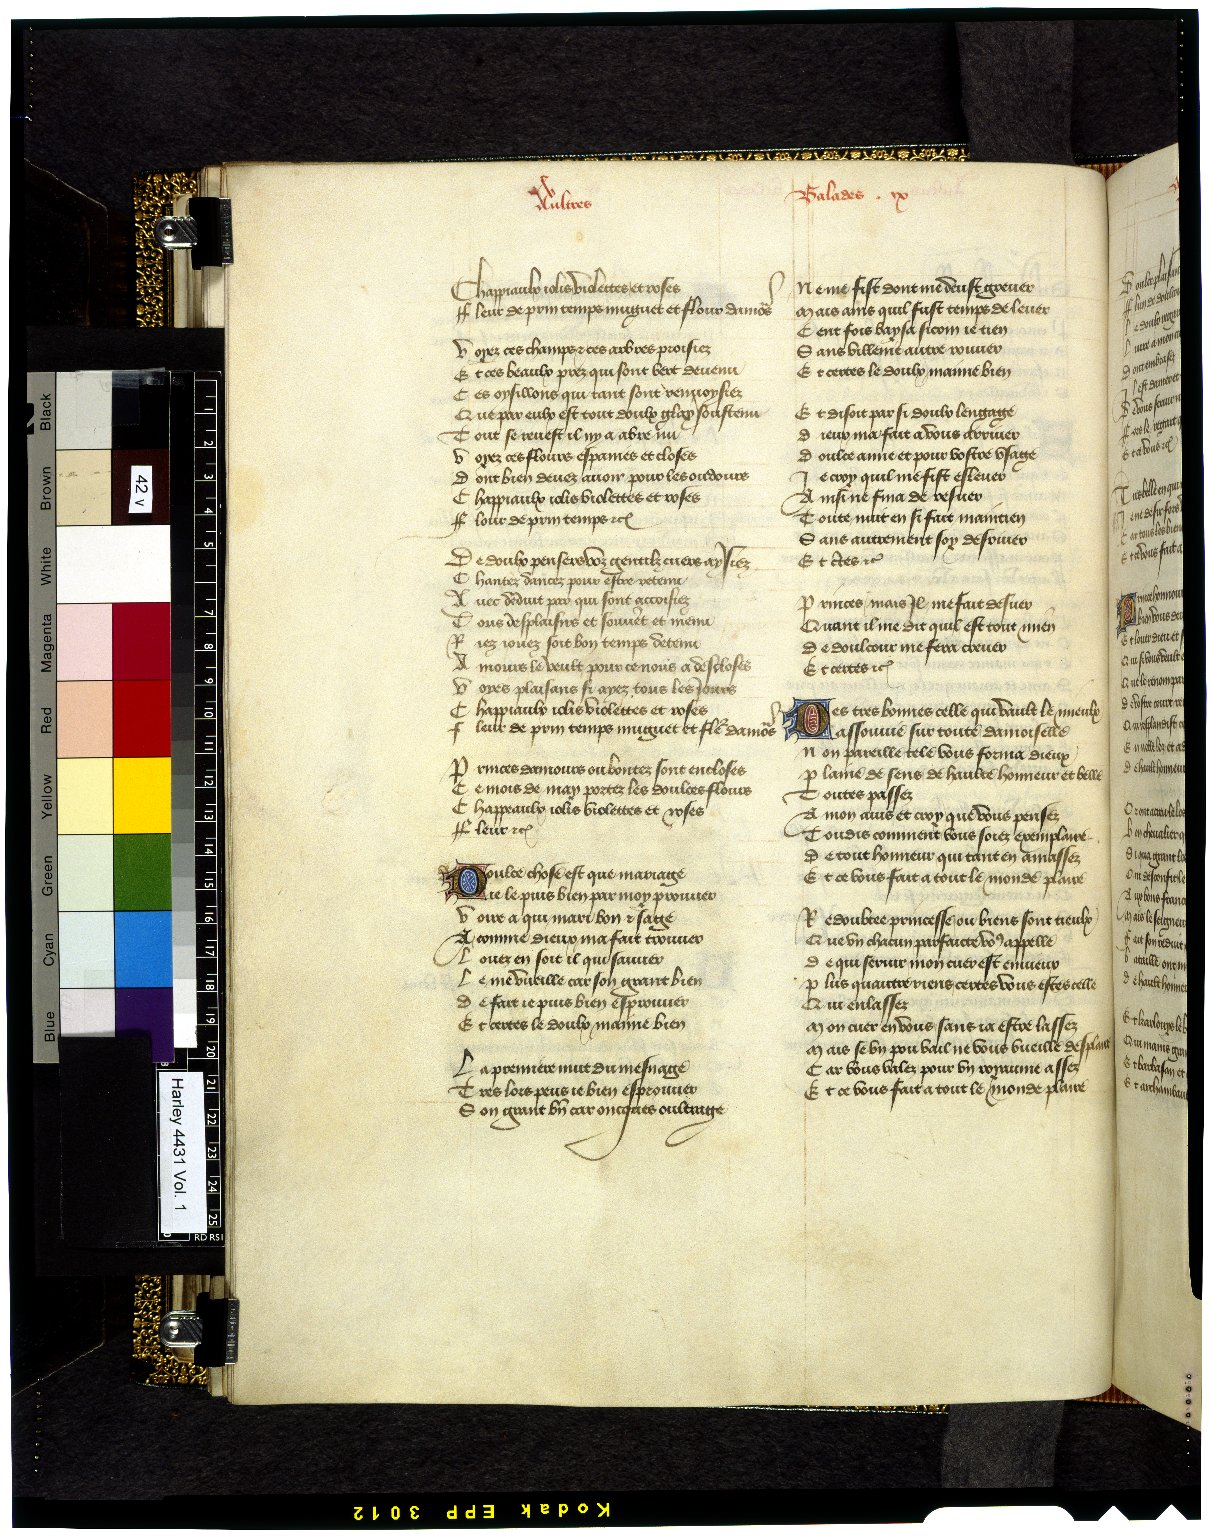 Aultres
Balades . ix
Chappiaulx iolis violettes et roses
ffleur de prin temps muguet et flour damors
Voyez ces champs z ces arbres proisiez
Et ces beaulx prez qui sont vert deuenu
Ces oysillons qui tant sont renuoysiez
Que par eulx est tout doulx glay soustenu
Tout se reuest il ny a abre nu
Voyez ces flours espanies et closes
Dont bien deuez auoir pour les oudours
Chappiaulx iolis violettes et roses
fflour de prin temps zc
De doulx pensers voz gentilz cuers aysiez
Chantez dancez pour estre retenu
Auec deduit par qui sont accoisiez
Tous desplaisirs et souuent et menu
Riez iouez soit bon temps detenu
Amours le veult pour ce nous a descloses
Voyes plaisans si ayez tous les jours
Chappiaulx iolis violettes et roses
fleur de prin temps muguet et fle damors
Princes damours ou bontez sont encloses
Ce mois de may portez les doulces flours
Chappeaulx iolis violettes et roses
ffleur zc
Doulce chose est que mariage
Je le puis bien par moy prouuer
Voire a qui mari bon z sage
A comme dieux ma fait trouuer
Louez en soit il qui sauuer
Le me vueille car son grant bien
De fait ie puis bien esprouuer
Et certes le doulx maime bien
La premiere nuit du mesnage
Tres lors peus ie bien esprouuer
Son grant bn car oncques oultrage
Ne me fist dont me deust greuer
Mais ains quil fust temps de leuer
Cent fois baysa sicom ie tien
Sans villenie autre rouuer
Et certes le doulx maime bien
Et disoit par si doulx lengage
dieux ma fait a vous arriuer
Doulce amie et pour vostre vsage
Je croy quil me fist esleuer
Ainsi ne fina de resuer
Toute nuit en si fait maintien
Sans autrement soy desriuer
Et ctes zc
Princes mais Jl me fait desuer
Quant il me dit quil est tout mien
De doulcour me fera creuer
Et certes zc
Des tres bonnes celle qui vault le mieulx
assouuie sur toute damoiselle
Non pareille tele vous forma dieux
plaine de sens de haulte honneur et belle
Toutes passez
A mon auis et croy que vous pensez
Toudis comment vous soiez exemplaire
De tout honneur qui tant en amassez
Et ce vous fait a tout le monde plaire
Redoubtee princesse ou biens sont tieulx
Que vn chacun parfaicte vo9 appelle
De qui seruir mon cuer est enuieux
plus quaultre riens certes vous estes celle
Qui enlassez
Mon cuer en vous sans ia estre lassez
Mais se vn pou vail ne vous vueille desplaire
Car vous valez pour vn royaume assez
Et ce vous fait a tout le monde plaire
Black
Brown
White
Magenta
Red
Yellow
Green
Cyan
Blue
42 v
Harley 4431 Vol. 1
1
2
3
4
5
7
8
9
10
11
12
13
14
15
16
17
18
19
20
21
22
23
24
25
Kodak EPP 3012